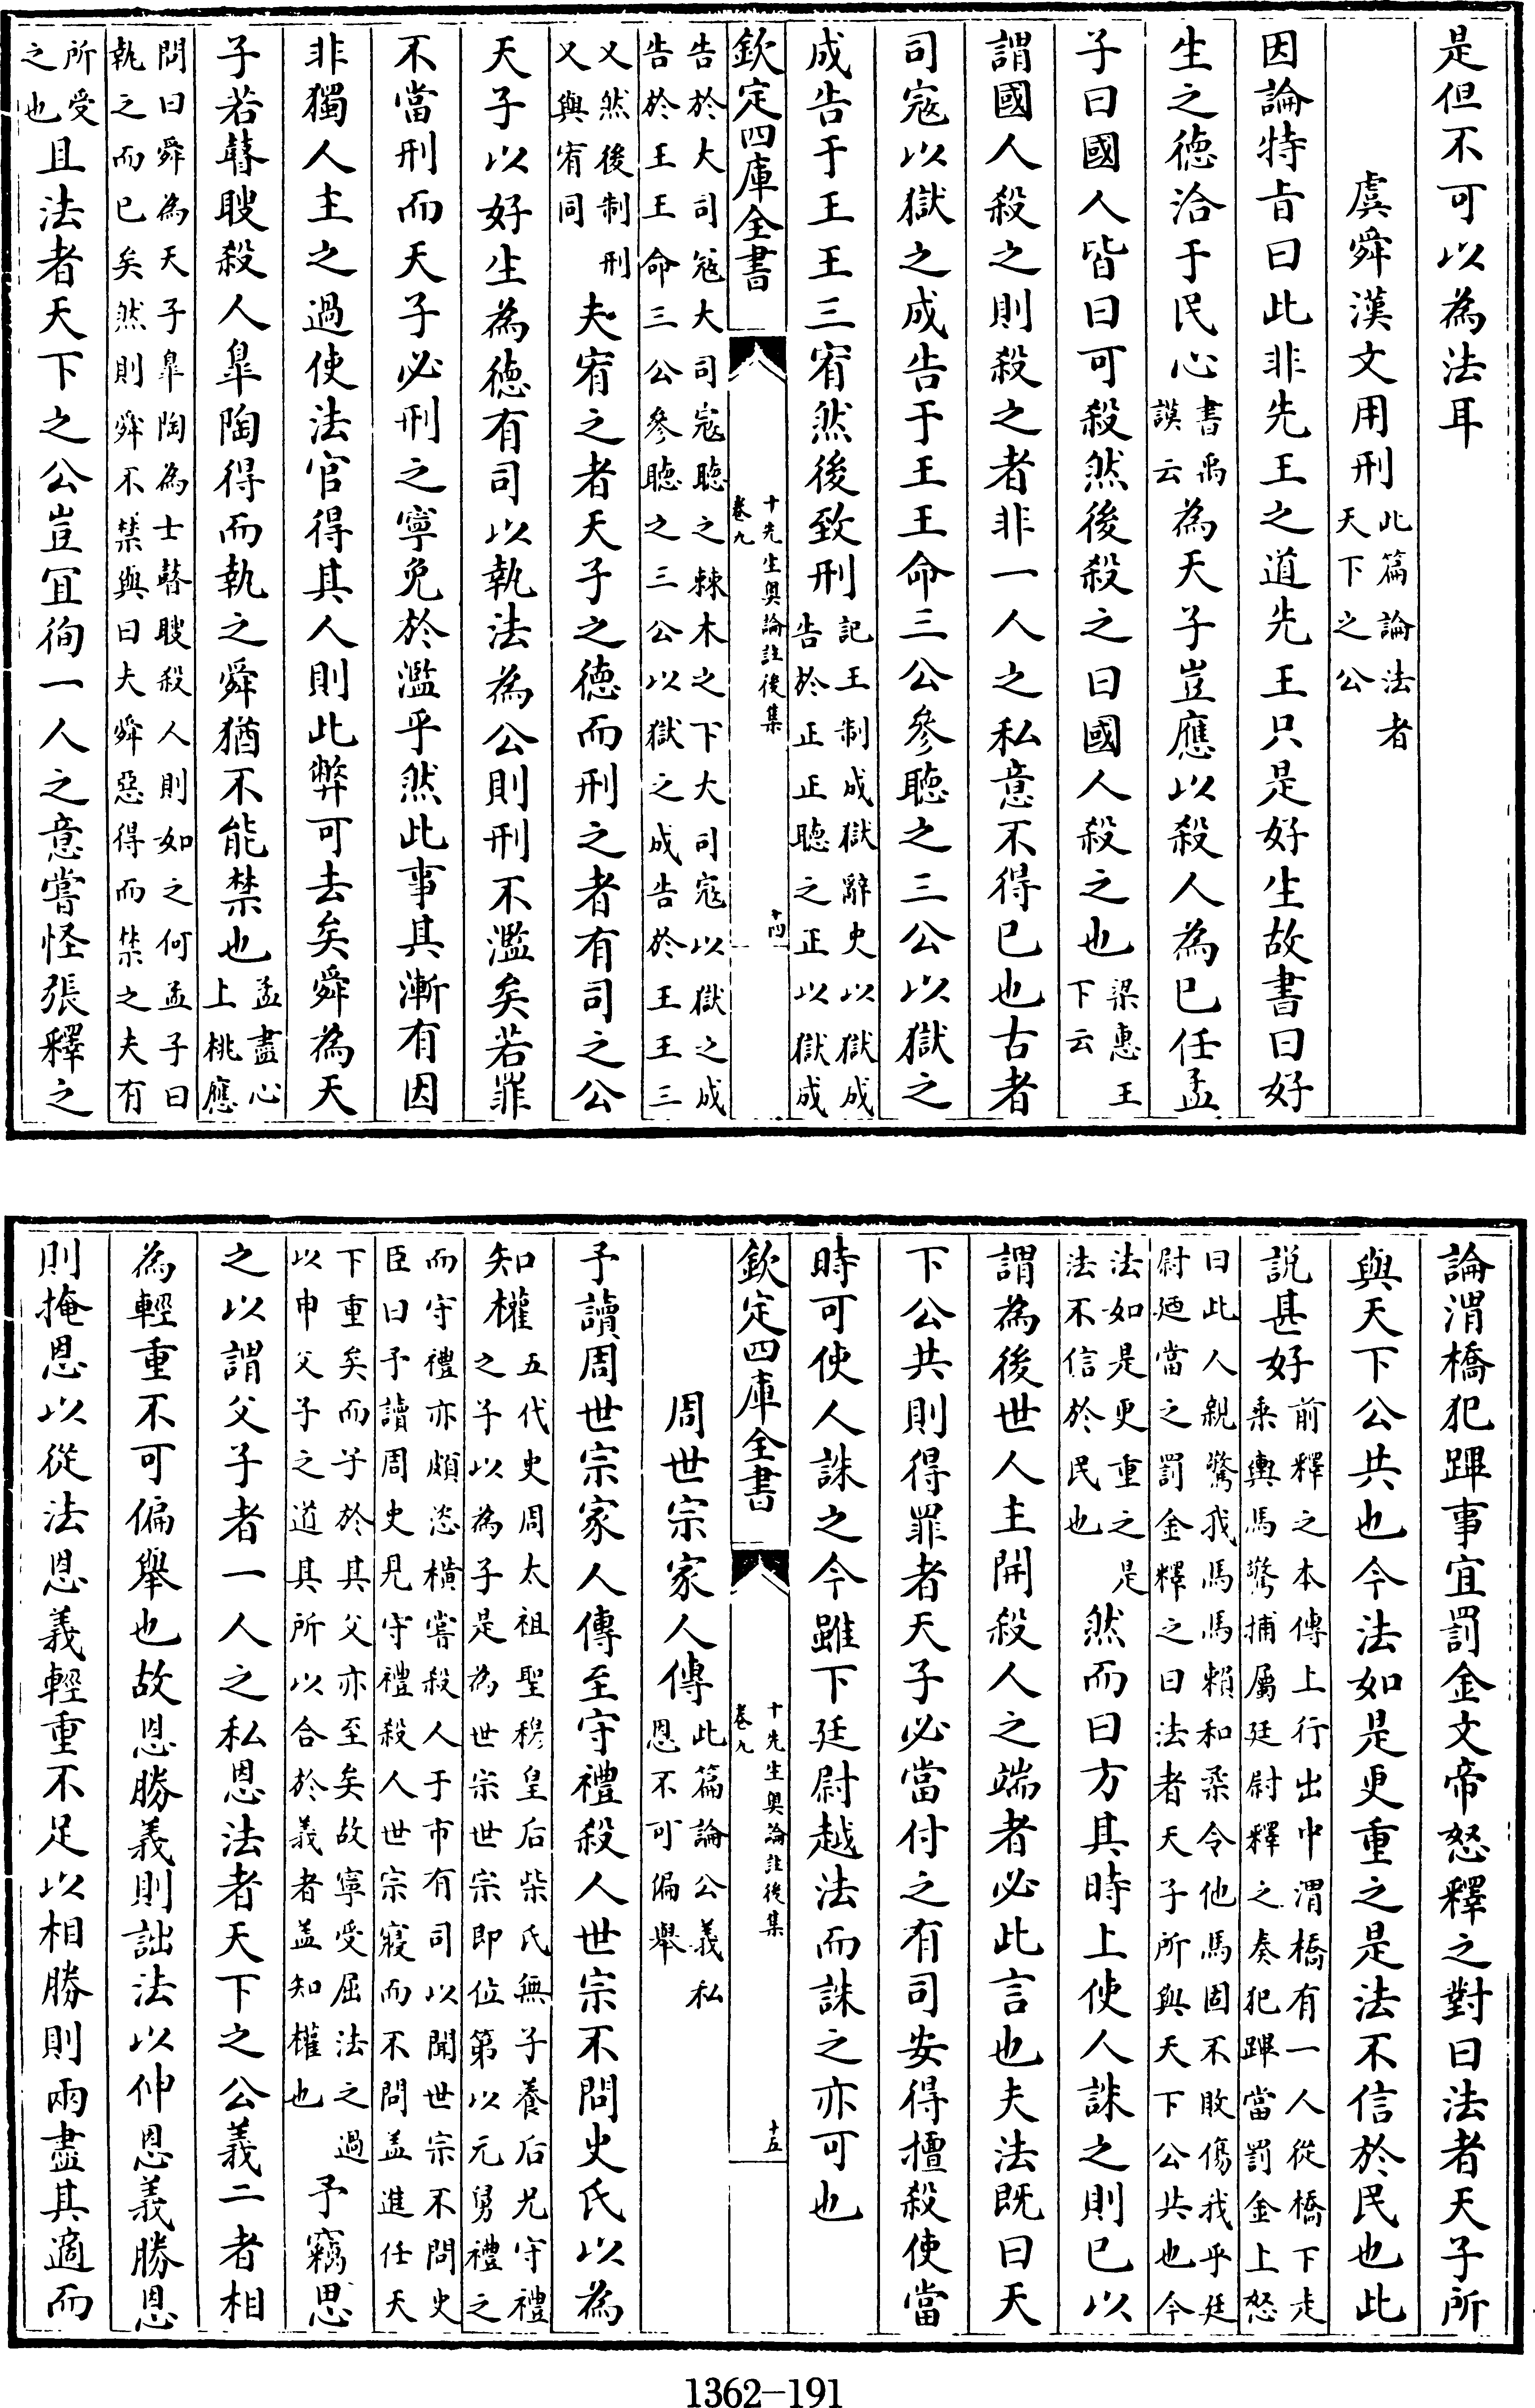 是但不可以為法耳
虞舜漢文用刑此篇論法者
天下之公
因論特㫖曰此非先王之道先王只是好生故書曰好
生之徳洽于民心書禹
謨云為天子豈應以殺人為已任孟
子曰國人皆曰可殺然後殺之曰國人殺之也梁惠王
下云
謂國人殺之則殺之者非一人之私意不得已也古者
司寇以獄之成告于王王命三公參聽之三公以獄之
成告于王王三宥然後致刑記王制成獄辭史以獄成
告於正正聽之正以獄成
欽定四庫全書
十先生奧論註後集
卷九
十四
告於大司寇大司寇聽之棘木之下大司寇以獄之成
告於王王命三公參聽之三公以獄之成告於王王三
又然後制刑
又與宥同夫宥之者天子之徳而刑之者有司之公
天子以好生為徳有司以執法為公則刑不濫矣若罪
不當刑而天子必刑之寧免於濫乎然此事其漸有因
非獨人主之過使法官得其人則此弊可去矣舜為天
子若瞽瞍殺人臯陶得而執之舜猶不能禁也孟盡心
上桃應
問曰舜為天子臯陶為士瞽瞍殺人則如之何孟子曰
執之而已矣然則舜不禁與曰夫舜惡得而禁之夫有
所受
之也且法者天下之公豈宜徇一人之意嘗怪張釋之
論渭橋犯蹕事宜罰金文帝怒釋之對曰法者天子所
與天下公共也今法如是更重之是法不信於民也此
説甚好前釋之本傳上行出中渭橋有一人從橋下走
乘輿馬驚捕屬廷尉釋之奏犯蹕當罰金上怒
曰此人親驚我馬馬賴和柔令他馬固不敗傷我乎廷
尉廼當之罰金釋之曰法者天子所與天下公共也今
法如是更重之是
法不信於民也然而曰方其時上使人誅之則已以
謂為後世人主開殺人之端者必此言也夫法既曰天
下公共則得罪者天子必當付之有司安得擅殺使當
時可使人誅之今雖下廷尉越法而誅之亦可也
欽定四庫全書
十先生奧論註後集
卷九
十五
周世宗家人傳此篇論公義私
恩不可偏舉
予讀周世宗家人傳至守禮殺人世宗不問史氏以為
知權五代史周太祖聖穆皇后柴氏無子養后兄守禮
之子以為子是為世宗世宗即位第以元舅禮之
而守禮亦頗恣橫嘗殺人于市有司以聞世宗不問史
臣曰予讀周史見守禮殺人世宗寢而不問盖進任天
下重矣而子於其父亦至矣故寧受屈法之過
以申父子之道其所以合於義者盖知權也予竊思
之以謂父子者一人之私恩法者天下之公義二者相
為輕重不可偏舉也故恩勝義則詘法以伸恩義勝恩
則掩恩以從法恩義輕重不足以相勝則兩盡其適而
1362-191